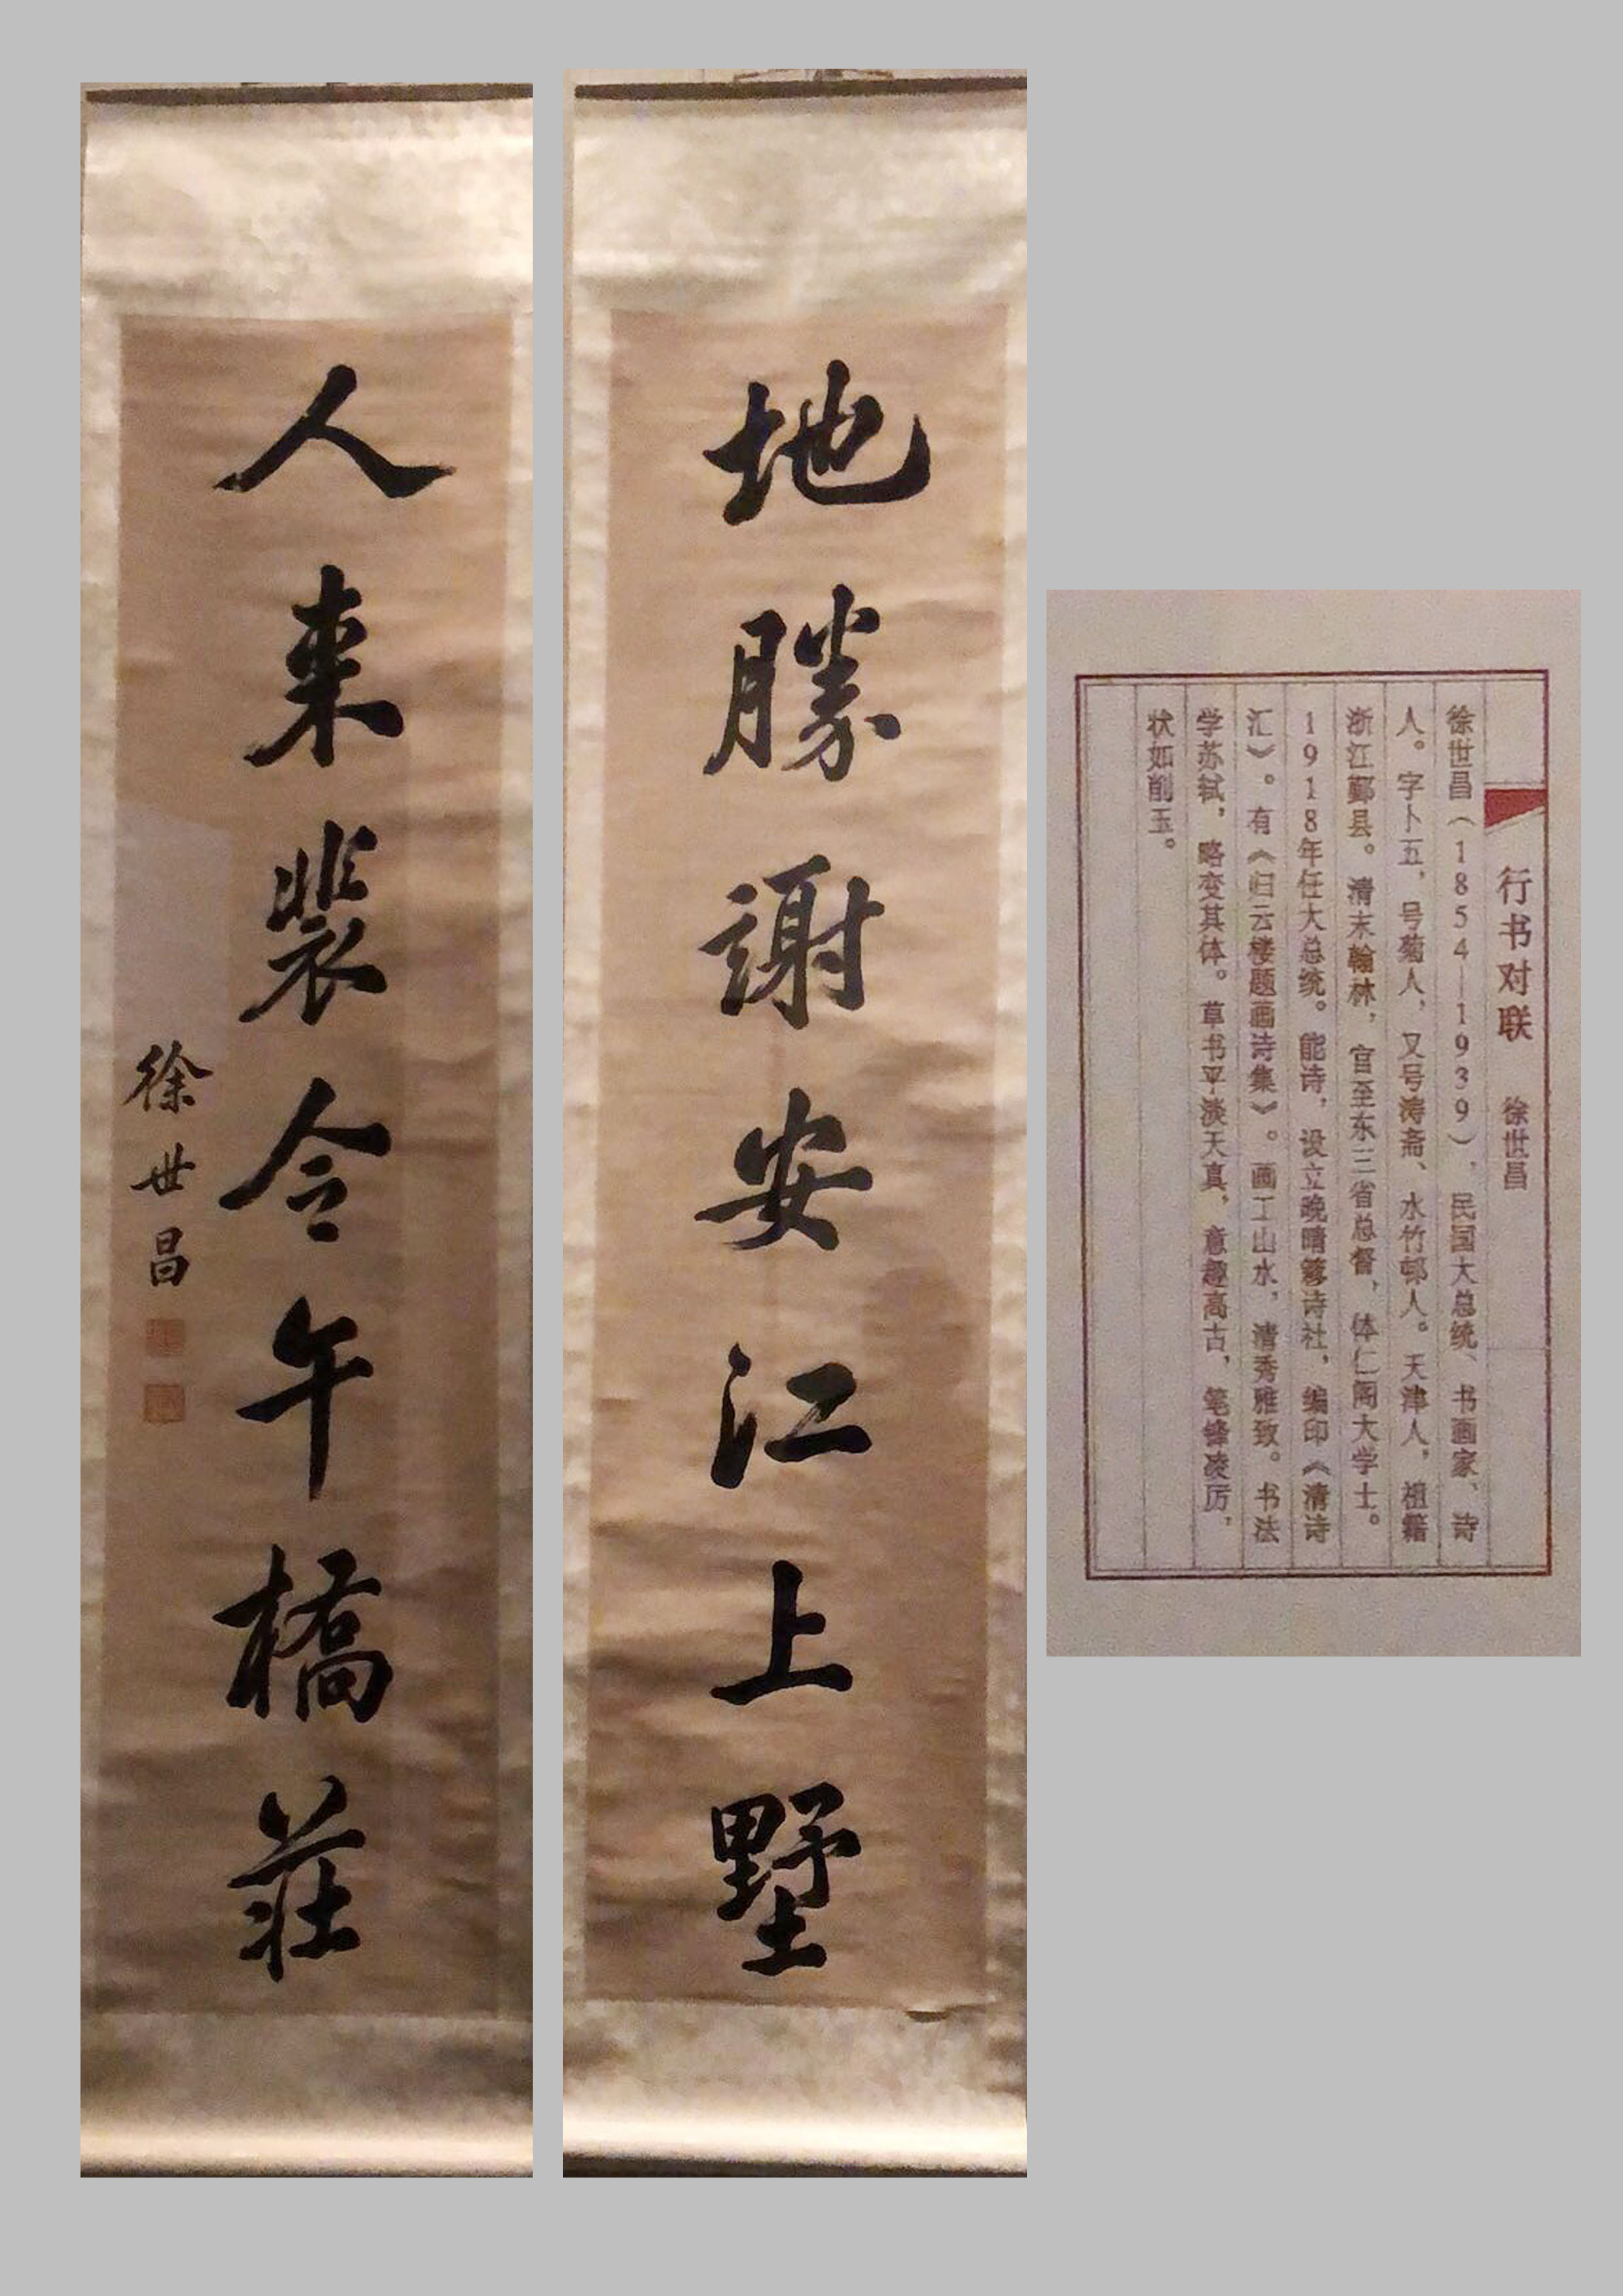 地勝謝安江上墅
人来裴令午橋莊
徐世昌
行书对联 徐世昌
徐世昌（1854—1939），民国大总统、书画家、诗
人。字卜五，号菊人，又号涛斋、水竹邨人。天津人，祖籍
浙江鄞县。清末翰林，官至东三省总督，体仁阁大学士。
1918年任大总统。能诗，设立晚晴簃诗社，编印《清诗
汇》。有《归云楼题画诗集》。画工山水，清秀雅致。书法
学苏轼，略变其体。草书平淡天真，意趣高古，笔锋凌厉，
状如削玉。